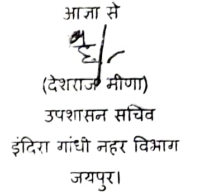 आज्ञा से
(देशराज मीणा)
उपशासन सचिव
इंदिरा गांधी नहर विभाग
जयपुर।